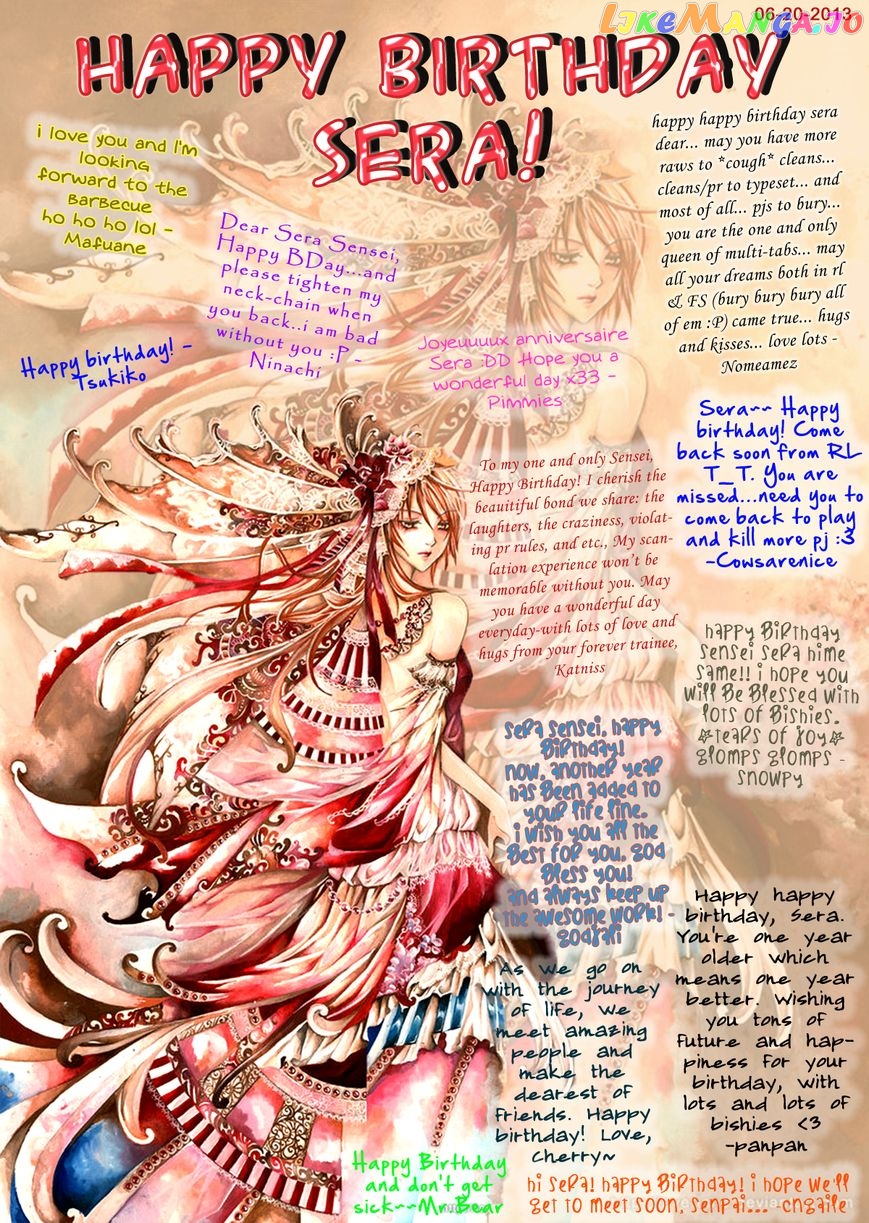 06-20-2013
LIKEMANGA.IO
HAPPY BIRTHDAY
SERA!
i love you and I'm
looking
forward to the
Barbecue
ho ho ho lol -
Mafuane
Dear Sera Sensei,
Happy BDay...and
please tighten my
neck-chain when
you back..i am bad
without you :P -
Ninachi
happy happy birthday sera
dear... may you have more
raws to *cough* cleans...
cleans/pr to typeset... and
most of all... pjs to bury...
you are the one and only
queen of multi-tabs... may
all your dreams both in rl
& FS (bury bury bury all
of em :P) came true... hugs
and kisses... love lots -
Nomeamez
Happy birthday! -
Tsukiko
Joyeuuuux anniversaire
Sera :DD Hope you a
wonderful day x33 -
Pimmies
Sera~~ Happy
birthday! Come
back soon from RL
T_T. You are
missed...need you to
come back to play
and kill more pj :3
-Cowsarenice
To my one and only Sensei,
Happy Birthday! I cherish the
beauitiful bond we share: the
laughters, the craziness, violat-
ing pr rules, and etc., My scan-
lation experience won't be
memorable without you. May
you have a wonderful day
everyday-with lots of love and
hugs from your forever trainee,
Katniss
Happy Birthday
Sensei Sera Hime
Same!! i hope you
will Be Blessed with
lots of Bishies.
*tears of joy*
glomps glomps -
snowpy
Sera Sensei, Happy
Birthday!
now, another year
has Been added to
your life line.
i wish you all the
Best for you. God
Bless you!
and always keep up
the awesome work! -
Godzaki
Happy happy
birthday, Sera.
You're one year
older which
means one year
better. Wishing
you tons of
future and hap-
piness for your
birthday, with
lots and lots of
bishies <3
-panpan
As we go on
with the journey
of life, we
meet amazing
people and
make the
dearest of
friends. Happy
birthday! Love,
Cherry~
Happy Birthday
and don't get
sick~~Mr.Bear
hi Sera! Happy Birthday! i hope we'll
get to meet soon, senpai... -cngaile